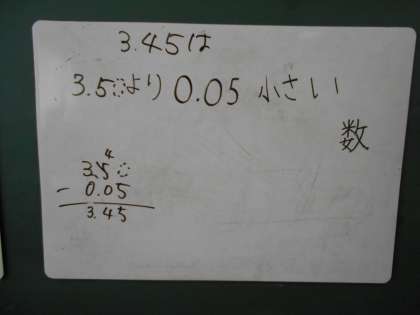 3.45は
3.5より 0.05 小さい
数
4
3.5
- 0.05
3.45